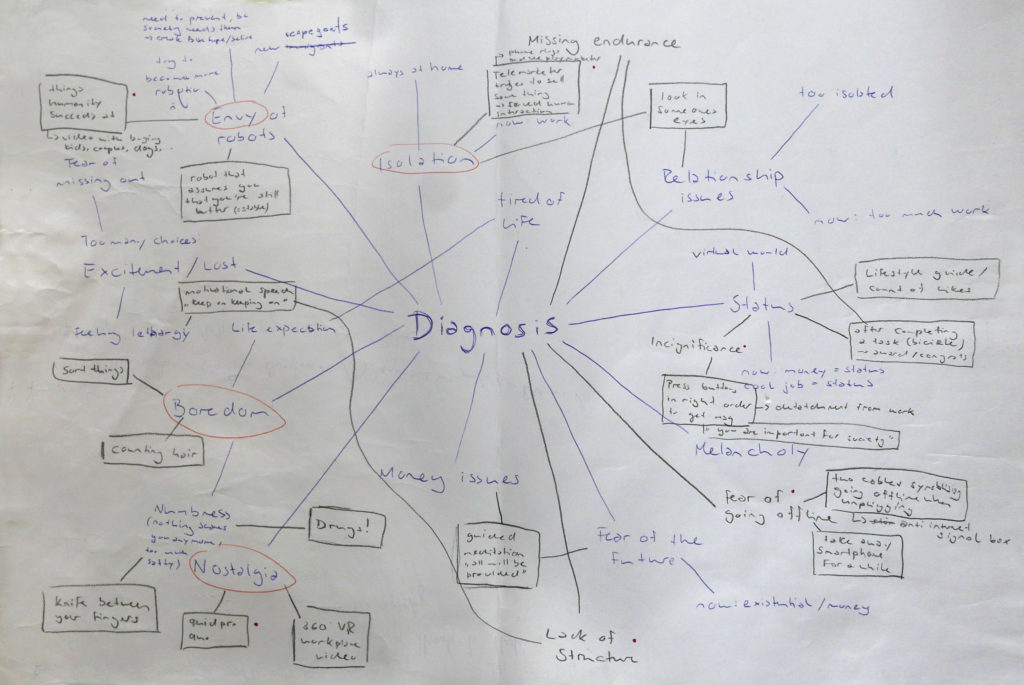 need to prevent, bc
society needs them
→ create
new scapegoats
try to
become more
robotic
things
humanity
succeeds at
Envy of
robots
↳ video with buying
kids, dogs, ...
Fear of
missing out
robot that
assures you
that you're still
better
Too many choices
Excitement / Lost
motivational speech
"keep on keeping on"
feeling lethargy
Life expectation
Sort things
Boredom
counting hair
Numbness
(nothing scares
you anymore,
too much
safety)
Drugs!
Nostalgia
knife between
your fingers
quid pro
quo
360 VR
workplace
video
always at home
Missing endurance
→ phone rings
Telemarketer
tries to sell
something
→ forced human
interaction
now: work
Isolation
look in
someones
eyes
too isolated
Relationship
issues
now: too much work
tired of
life
virtual world
Status
Lifestyle guide /
count of likes
after completing
a task (bicicle)
→ award / congrats
Diagnosis
Incignificance
now: money = status
cool job = status
Press buttons
in right order
to get msg
→ detatchment from work
"you are important for society"
Melancholy
Money issues
guided
meditation
"all will be
provided"
Fear of the
Future
now: existential / money
Fear of
going offline
two cables symbolising
going offline when
unplugging
↳ anti internet
signal box
take away
smartphone
for a while
Lack of
Structure